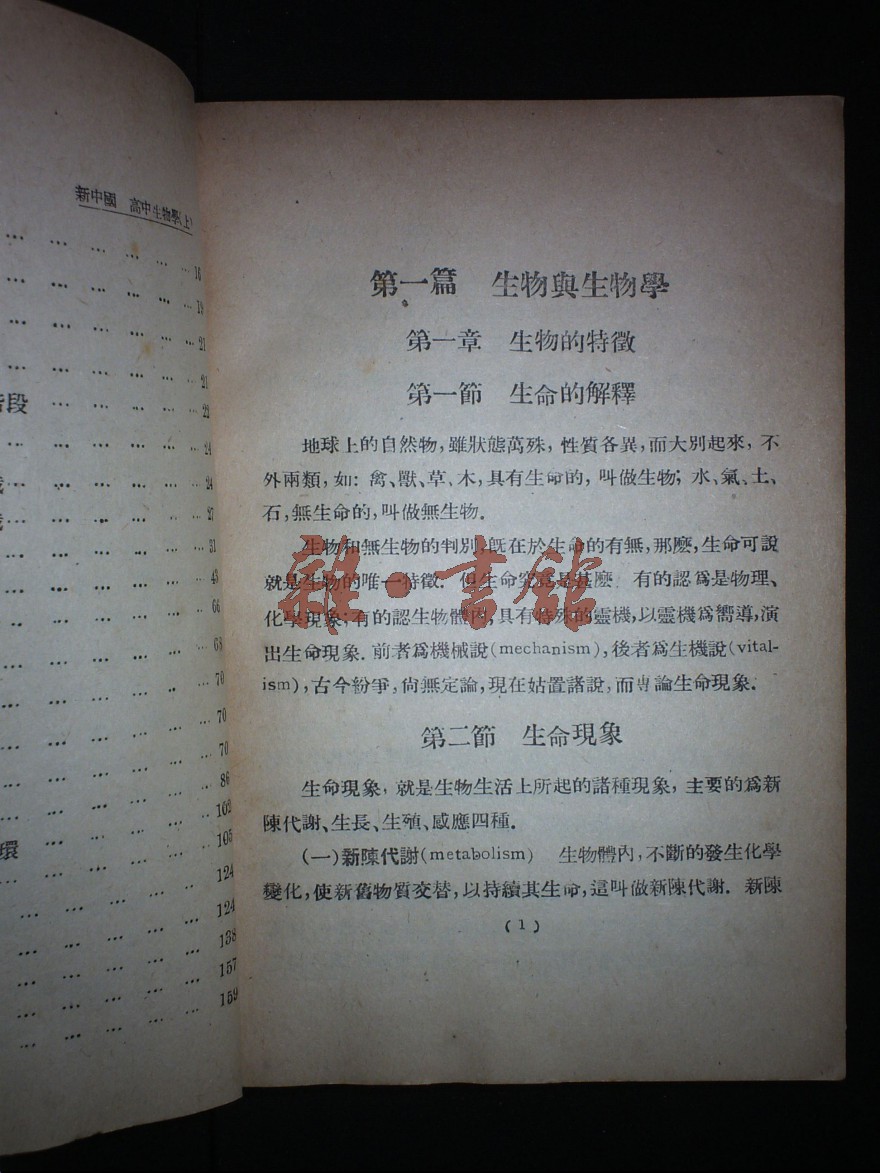 新中國 高中生物學(上)
... ... ... ... ... 16
... ... ... ... ... 19
... ... ... ... ... 21
... ... ... ... ... 21
階段 ... ... ... ... 23
... ... ... ... ... 24
... ... ... ... 24
... ... ... ... 27
... ... ... ... ... 31
... ... ... ... ... 43
... ... ... ... ... 66
... ... ... ... ... 68
... ... ... ... ... 70
... ... ... ... ... 70
... ... ... ... ... 70
... ... ... ... ... 86
... ... ... ... ... 102
環 ... ... ... ... 105
... ... ... ... ... 124
... ... ... ... ... 124
... ... ... ... ... 138
... ... ... ... ... 157
... ... ... ... ... 159
第一篇 生物與生物學
第一章 生物的特徵
第一節 生命的解釋
地球上的自然物,雖狀態萬殊,性質各異,而大別起來,不
外兩類,如:禽、獸、草、木,具有生命的,叫做生物;水、氣、土、
石,無生命的,叫做無生物.
生物和無生物的判別,旣在於生命的有無,那麽,生命可說
就是生物的唯一特徵.但生命究竟是甚麽 有的認爲是物理、
化學現象;有的認生物體內,具有特殊的靈機,以靈機爲嚮導,演
出生命現象.前者爲機械說(mechanism),後者爲生機說(vital-
ism),古今紛爭,尙無定論,現在姑置諸說,而專論生命現象.
第二節 生命現象
生命現象,就是生物生活上所起的諸種現象,主要的爲新
陳代謝、生長、生殖、感應四種.
(一)新陳代謝(metabolism) 生物體內,不斷的發生化學
變化,使新舊物質交替,以持續其生命,這叫做新陳代謝.新陳
(1)
雜·書館